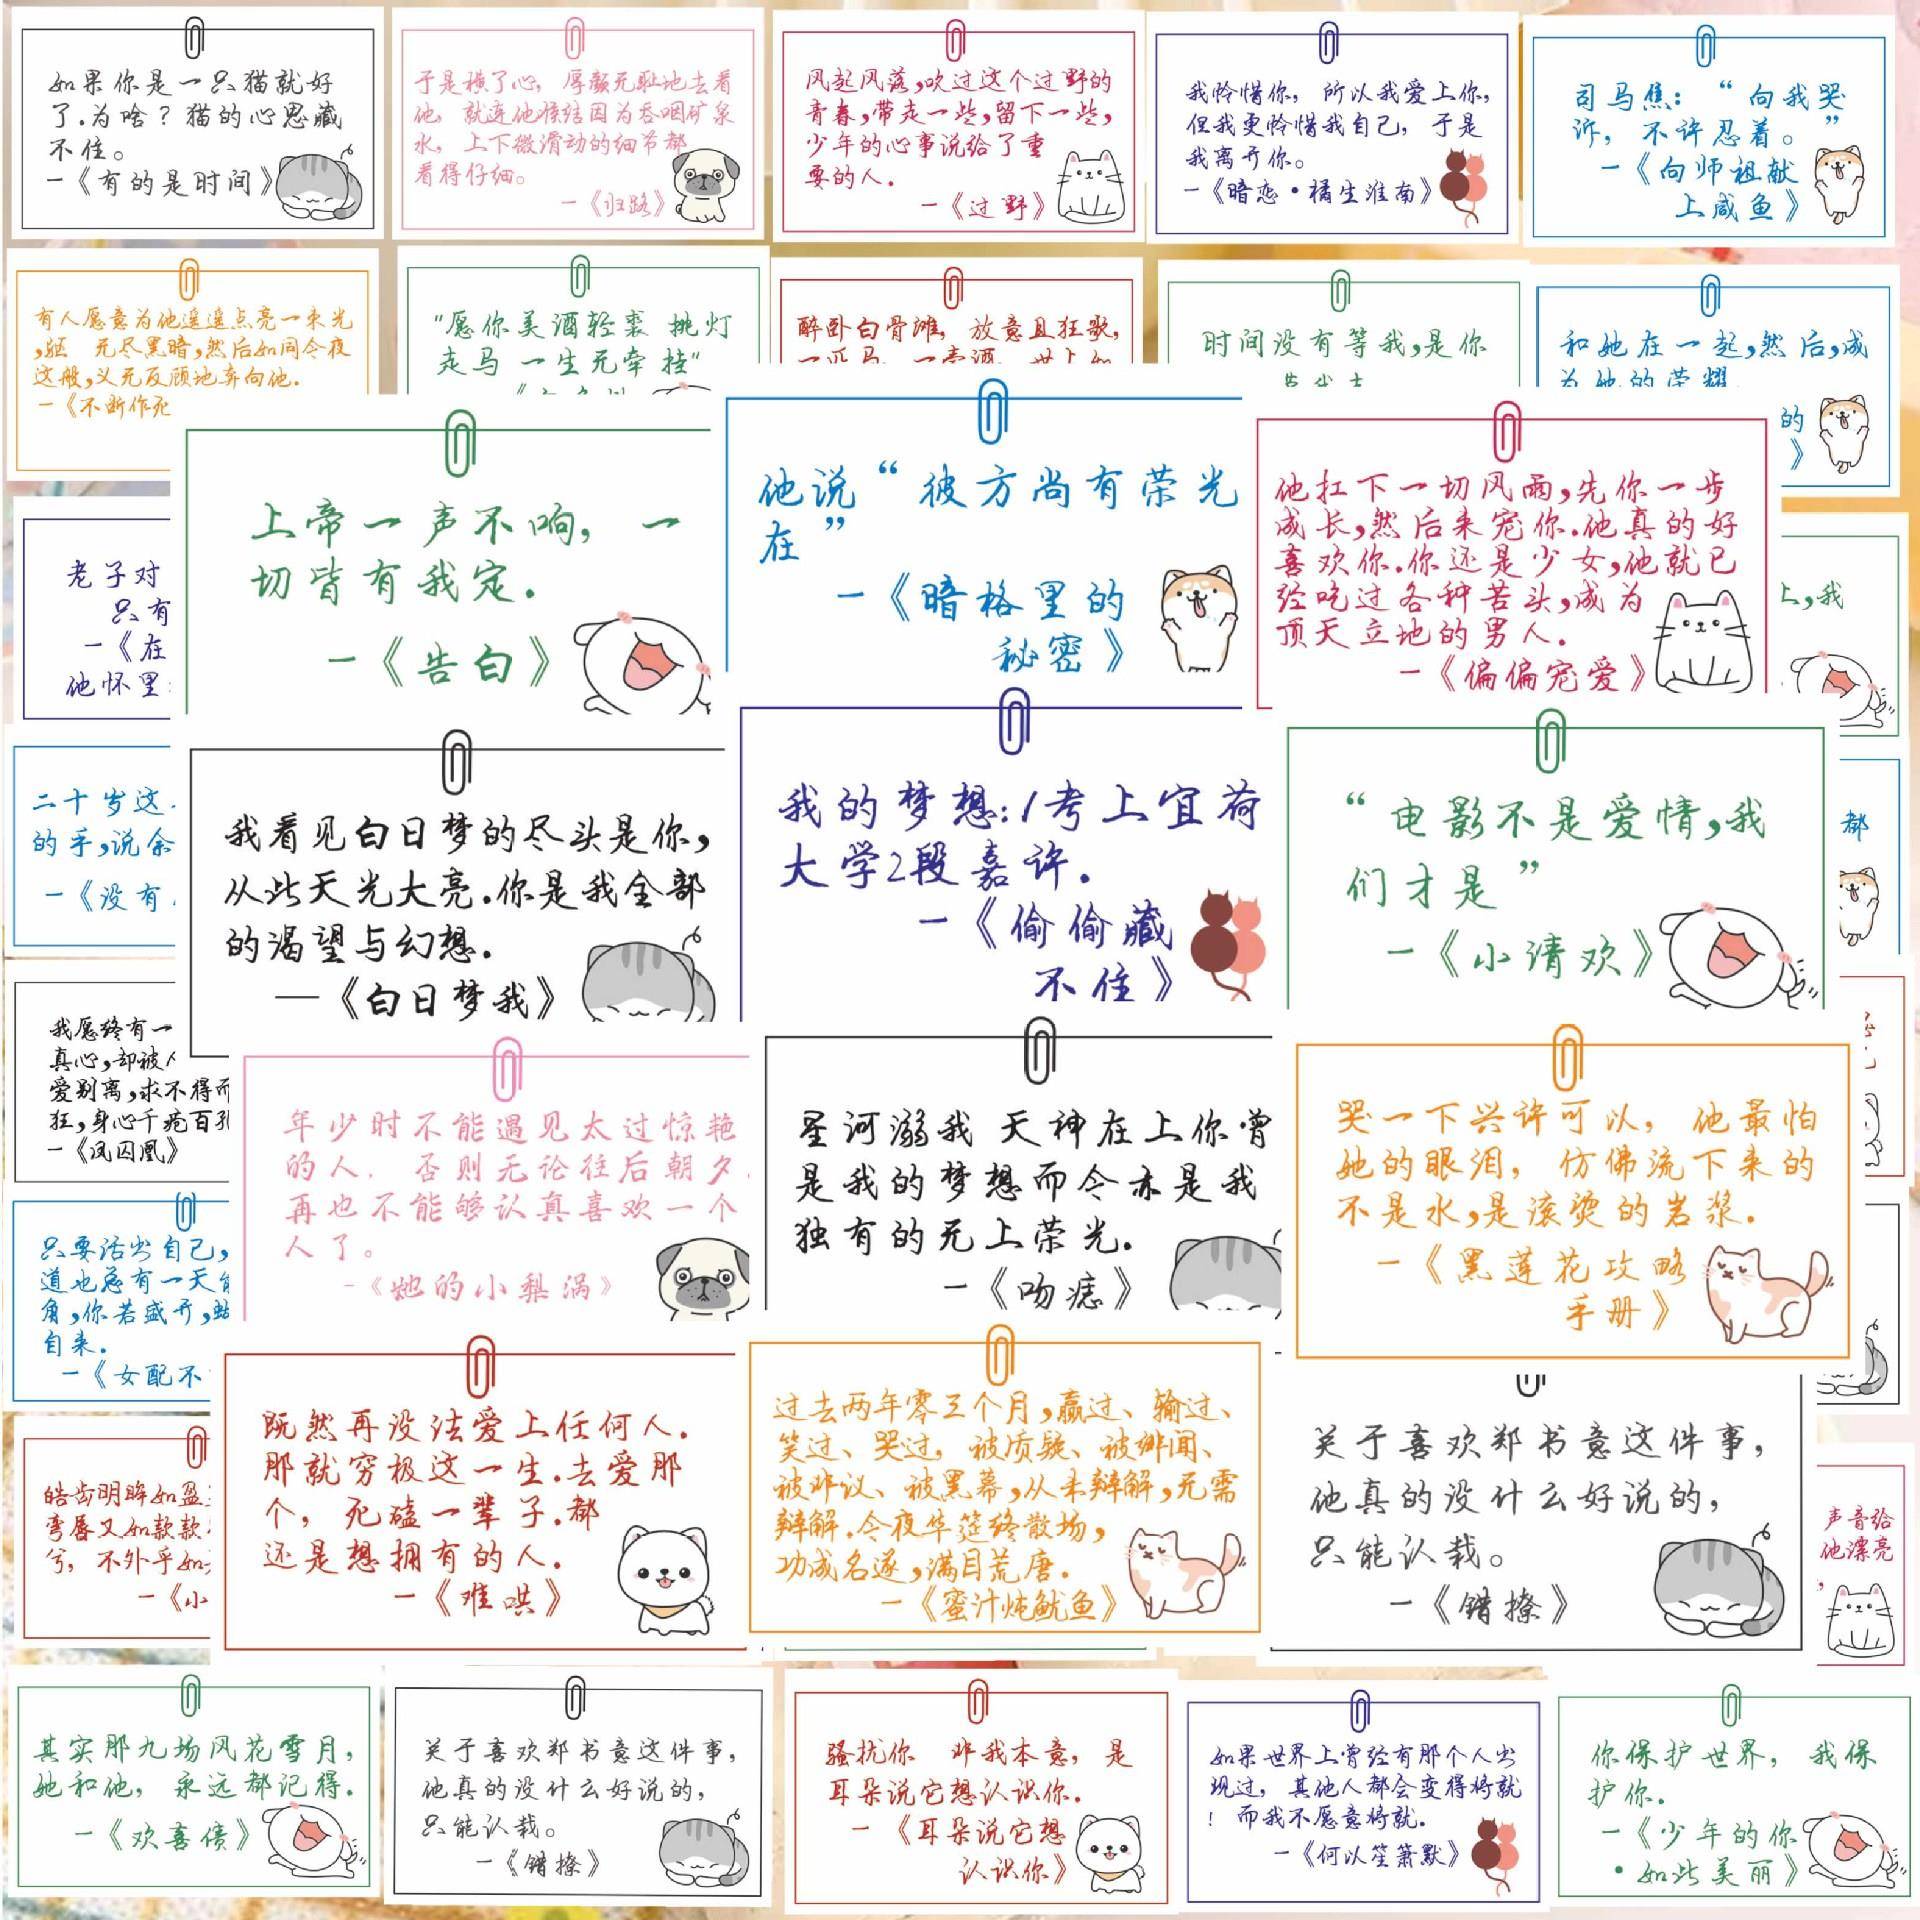 如果你是一只猫就好
了.为啥？猫的心思藏
不住。
一《有的是时间》
于是横了心，厚颜无耻地去看
他，就连他喉结因为吞咽矿泉
水，上下微滑动的细节都
看得仔细。
一《归路》
风起风落,吹过这个过野的
青春,带走一些,留下一些,
少年的心事说给了重
要的人.
一《过野》
我怜惜你，所以我爱上你,
但我更怜惜我自己，于是
我离开你。
一《暗恋·橘生淮南》
司马焦：“向我哭
诉，不许忍着。”
一《向师祖献
上咸鱼》
有人愿意为他遥遥点亮一束光
无尽黑暗,然后如同今夜
这般,义无反顾地奔向他.
一《不断作死
"愿你美酒轻裘 挑灯
走马 一生无牵挂"
醉卧白骨滩，放意且狂歌,
一匹马，一壶酒，世上如
时间没有等我,是你
和她在一起,然后,成
为她的荣耀
的
》
上帝一声不响，一
切皆有我定.
一《告白》
他说“彼方尚有荣光
在”
一《暗格里的
秘密》
他扛下一切风雨,先你一步
成长,然后来宠你.他真的好
喜欢你.你还是少女,他就已
经吃过各种苦头,成为
顶天立地的男人.
一《偏偏宠爱》
老子对
只有
一《在
他怀里
上,我
我看见白日梦的尽头是你,
从此天光大亮.你是我全部
的渴望与幻想.
—《白日梦我》
我的梦想:1考上宜荷
大学2段嘉许.
一《偷偷藏
不住》
“电影不是爱情,我
们才是”
一《小清欢》
二十岁这
的手,说余
一《没有
都
我愿终有一
真心,却被人
爱别离,求不得而
狂,身心千疮百孔
一《凤囚凰》
年少时不能遇见太过惊艳
的人．否则无论往后朝夕.
再也不能够认真喜欢一个
人了。
-《她的小梨涡》
星河溺我 天神在上你曾
是我的梦想而今亦是我
独有的无上荣光.
一《吻痣》
哭一下兴许可以，他最怕
她的眼泪，仿佛流下来的
不是水,是滚烫的岩浆.
一《黑莲花攻略
手册》
只要活出自己,
道也总有一天
角,你若盛开,
自来.
一《女配不
既然再没法爱上任何人.
那就穷极这一生.去爱那
个，死磕一辈子.都
还是想拥有的人.
一《难哄》
过去两年零三个月,赢过、输过、
笑过、哭过，被质疑、被绯闻、
被非议、被黑幕,从未辩解,无需
辩解.今夜华筵终散场,
功成名遂,满目荒唐.
一《蜜汁炖鱿鱼》
关于喜欢郑书意这件事,
他真的没什么好说的,
只能认栽。
一《错撩》
皓齿明眸如盈
弯唇又如款款
兮，不外乎如
一《小
声音给
他漂亮
其实那九场风花雪月,
她和他，永远都记得.
一《欢喜债》
关于喜欢郑书意这件事,
他真的没什么好说的,
只能认栽。
一《错撩》
骚扰你 非我本意，是
耳朵说它想认识你.
一《耳朵说它想
认识你》
如果世界上曾经有那个人出
现过，其他人都会变得将就
！而我不愿意将就.
一《何以笙箫默》
你保护世界，我保
护你.
一《少年的你
·如此美丽》